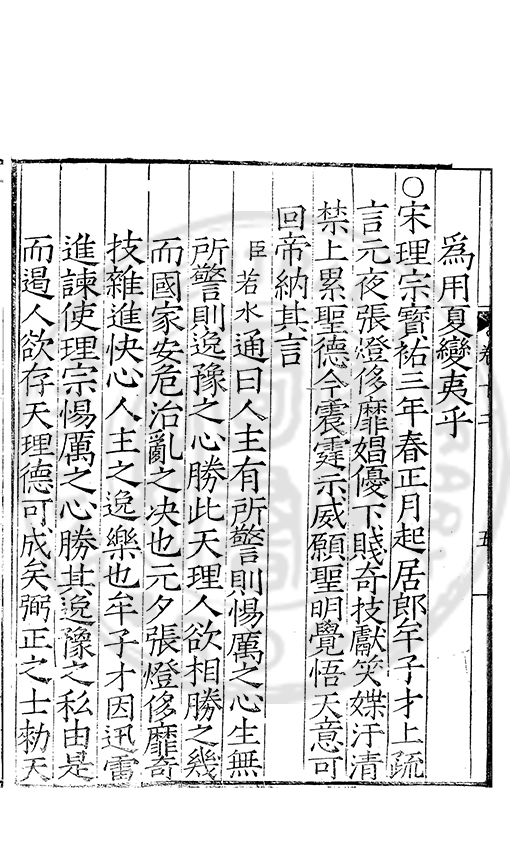 爲用夏變夷乎
○宋理宗寳祐三年春正月起居郎牟子才上疏
言元夜張燈侈靡娼優下賤奇技獻笑媟汙清
禁上累聖德今震霆示威願聖明覺悟天意可
回帝納其言
臣若水通曰人主有所警則惕厲之心生無
所警則逸豫之心勝此天理人欲相勝之幾
而國家安危治亂之決也元夕張燈侈靡奇
技雜進快心人主之逸樂也牟子才因迅雷
進諫使理宗惕厲之心勝其逸豫之私由是
而遏人欲存天理德可成矣弼正之士勑天